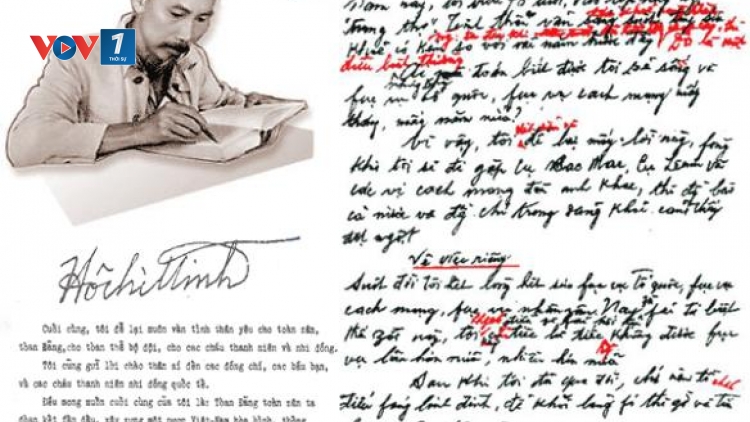 VOV1
THỜI SỰ
HồchíMinh
Cuối cùng, tôi để lại muôn vàn tình thân yêu cho toàn dân,
toàn Đảng, cho toàn thể bộ đội, cho các cháu thanh niên và nhi đồng.
Tôi cũng gửi lời chào thân ái đến các đồng chí, các bầu bạn,
và các cháu thanh niên nhi đồng quốc tế.
Điều mong muốn cuối cùng của tôi là: Toàn Đảng toàn dân ta
đoàn kết phấn đấu, xây dựng một nước Việt-Nam hòa bình, thống
"trung thọ"
điều bình thường
ai đoán biết được tôi sẽ sống và
fục vụ tổ quốc, fục vụ cách mạng mấy
tháng, mấy năm nữa?
Vì vậy, tôi để lại mấy lời này, fòng
khi tôi sẽ đi gặp cụ Các Mác, cụ Lênin và
các vị cách mạng đàn anh khác, thì đồng bào
cả nước và đ/c chí trong đảng khỏi cảm thấy
đột ngột
Về việc riêng
Suốt đời tôi hết lòng hết sức fục vụ tổ quốc, fục vụ
cách mạng, fục vụ nhân dân. Nay fải từ biệt
thế zới này, tôi không có điều gì fải hối hận, chỉ tiếc là tiếc không được fục
vụ lâu hơn nữa, nhiều hơn nữa
Sau khi tôi đã qua đời, chớ nên tổ chức
điếu fúng linh đình, để khỏi lãng fí thì giờ và tiền